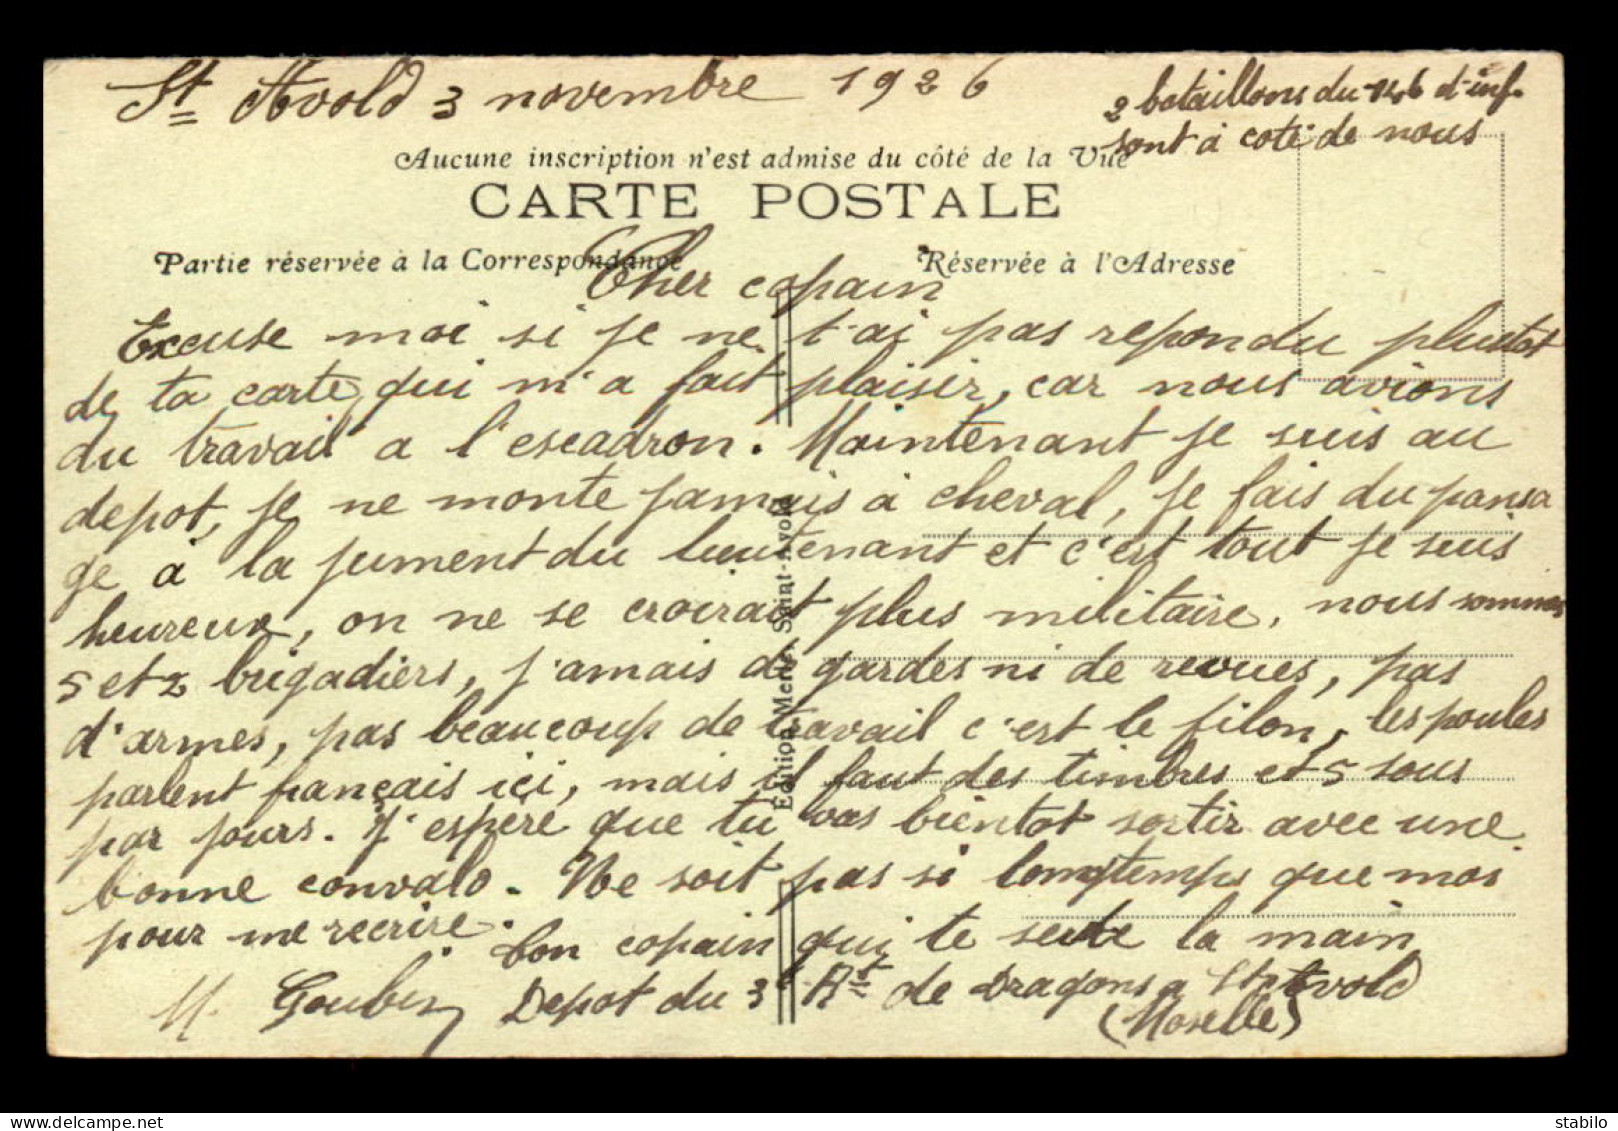 St Avold 3 novembre 1926
2 bataillons du 146 d'inf.
sont à coté de nous
Aucune inscription n'est admise du côté de la Vue
CARTE POSTALE
Partie réservée à la Correspondance
Réservée à l'Adresse
Cher copain
Excuse moi si je ne t'ai pas repondu plustot
de ta carte qui m'a fait plaisir, car nous avions
du travail a l'escadron. Maintenant je suis au
depot, je ne monte jamais à cheval, je fais du pansa
ge à la jument du lieutenant et c'est tout je suis
heureux, on ne se croirait plus militaire, nous sommes
5 et 2 brigadiers, j'amais de gardes ni de revues, pas
d'armes, pas beaucoup de travail c'est le filon, les poules
parlent français içi, mais il faut des timbres et 5 sous
par jours. J'espere que tu vas bientot sortir avec une
bonne convalo. Ne soit pas si longtemps que moi
pour me recrire.
Ton copain qui te serre la main
M. Depot du 3e Rt de Dragons a St Avold
(Moselle)
Edition Saint-Avold